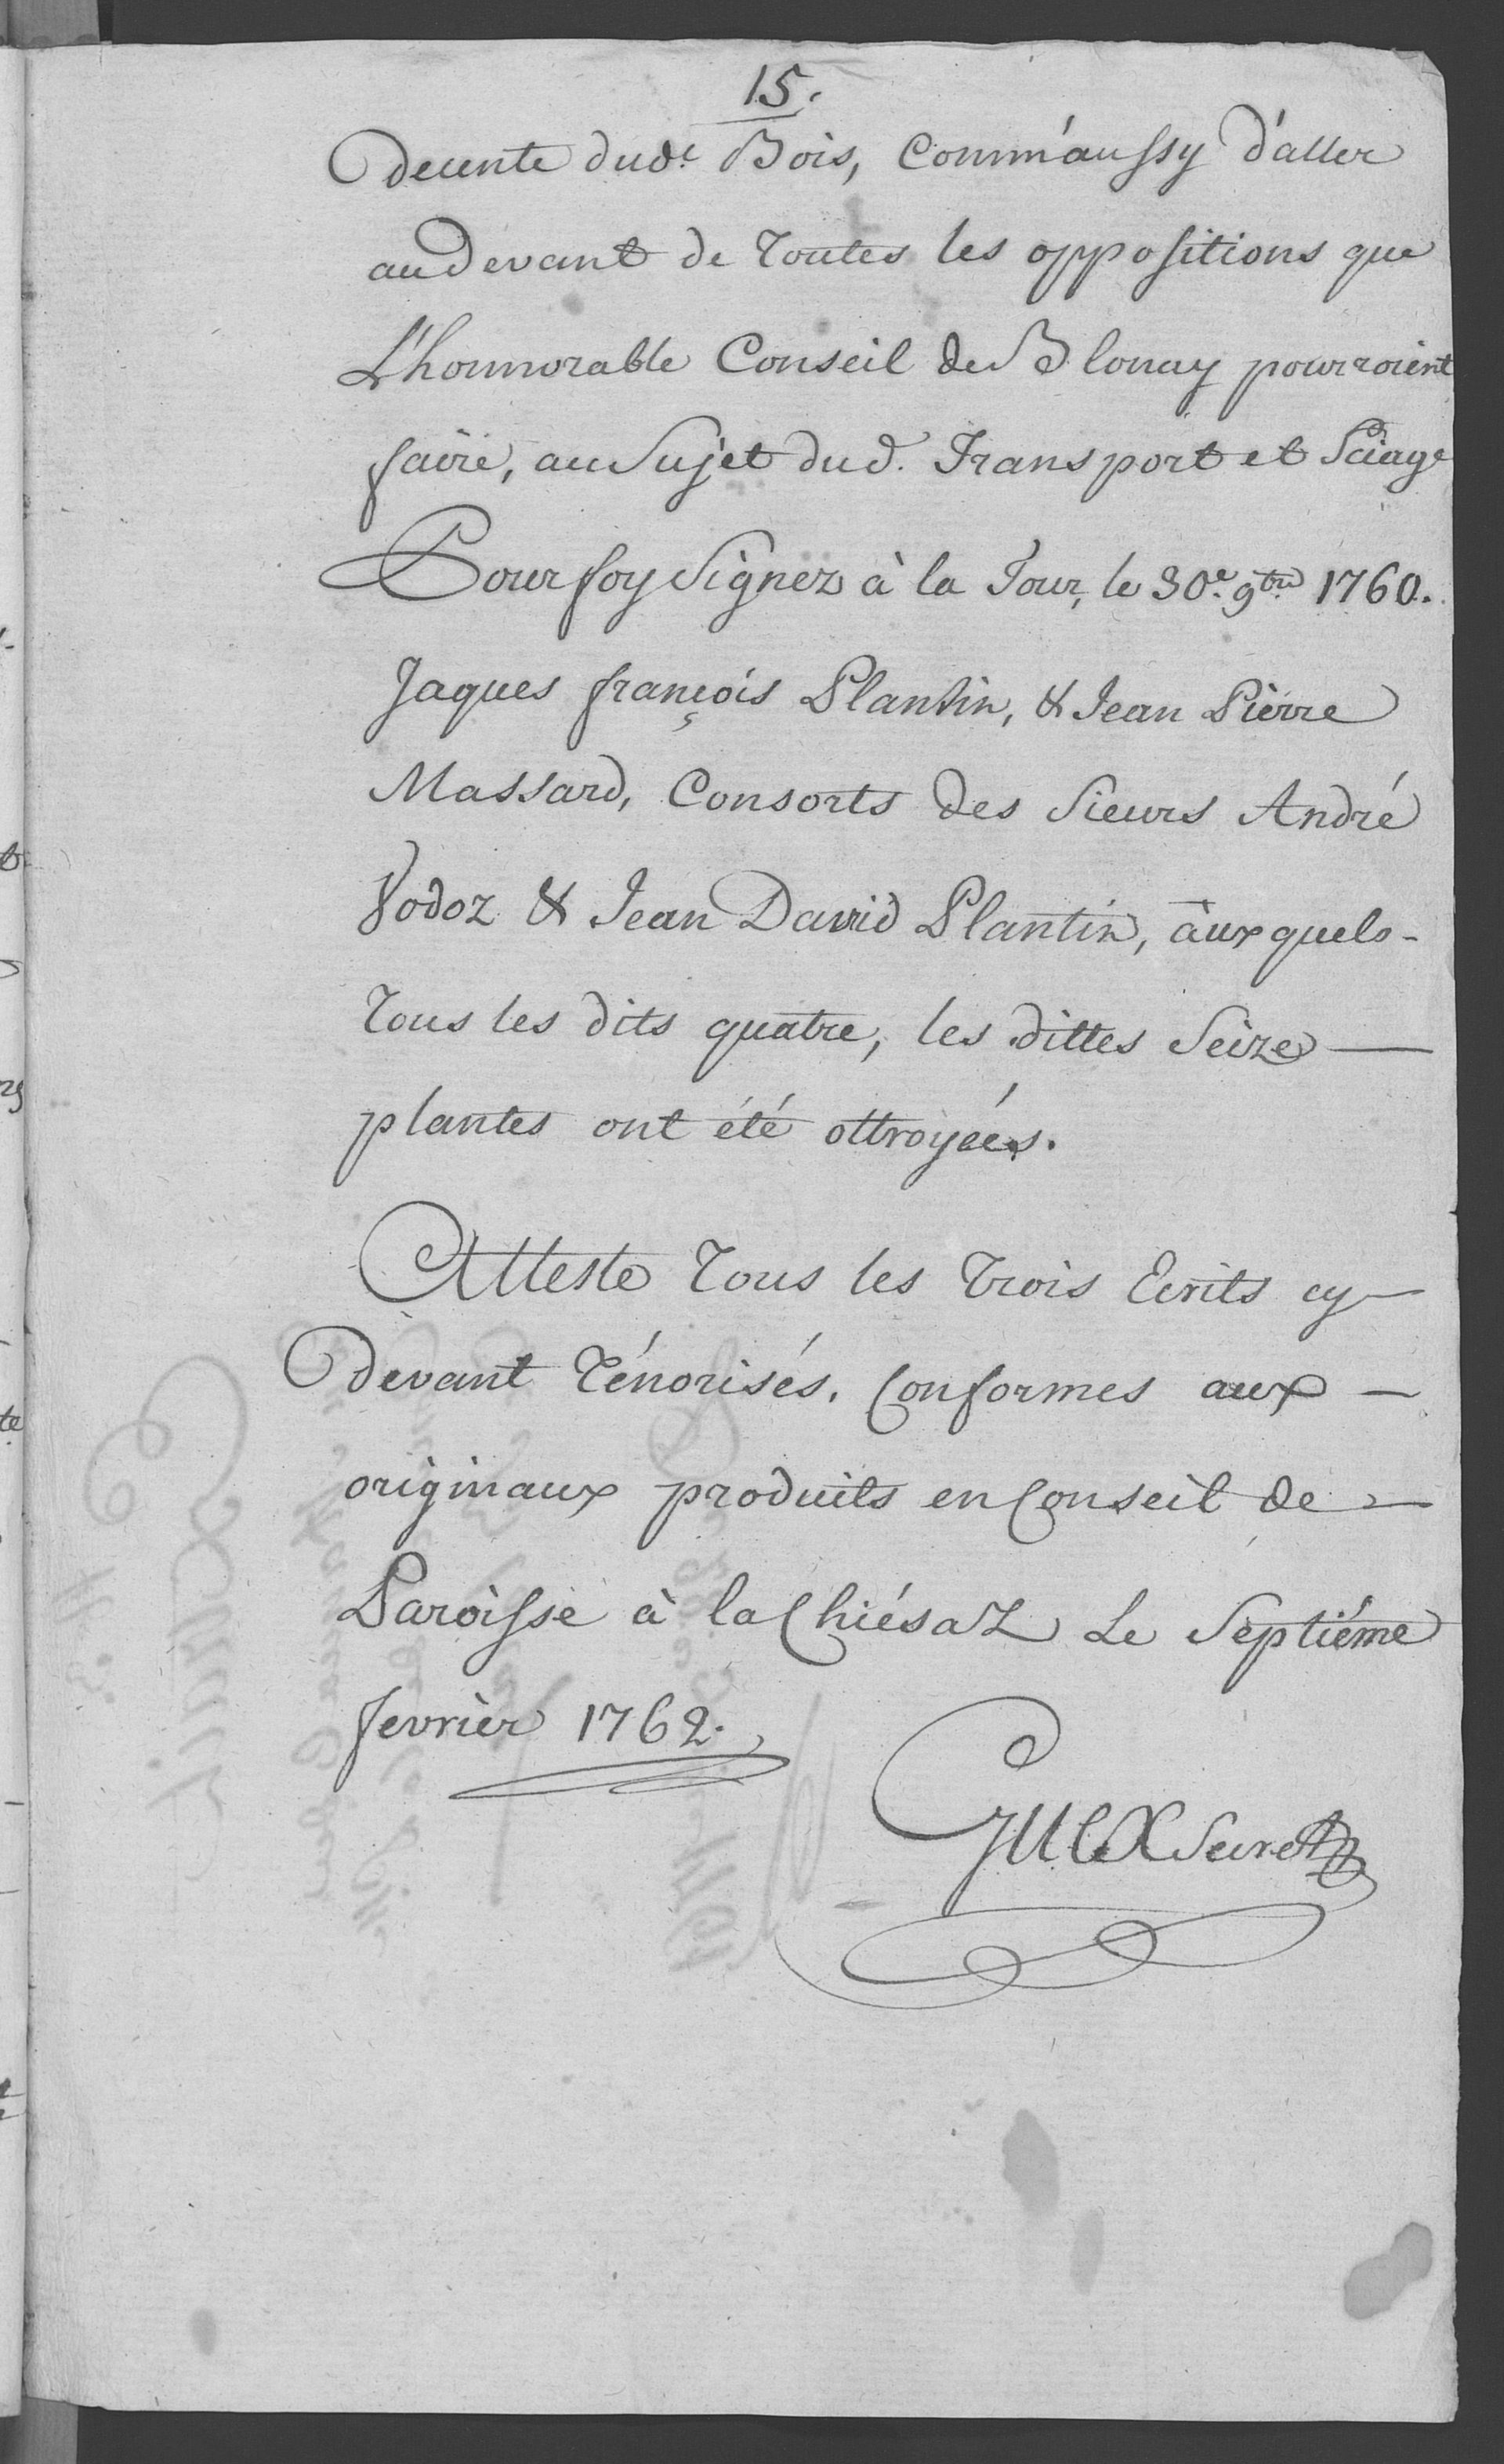 15.
decente dud.t Bois, Comm'aussy d'aller
audevant de Toutes les oppositions que
L'honnorable Conseil de Blonay pourroient
faire, au Sujet dud. Transport et Sciage
Pour foy Signez à la Tour, le 30.e 9.bre 1760.
Jaques françois Plantin, & Jean Pierre
Massard, Consorts des Sieurs André
Vodoz & Jean David Plantin, auxquels -
Tous les dits quatre, les dittes Seize —
plantes ont été ottroyées.
Atteste Tous les Trois Ecrits cy —
devant Ténorisés. Conformes aux —
originaux produits en Conseil de —
Paroisse à la Chiésaz Le Septiéme
fevrier 1762.
Secret.